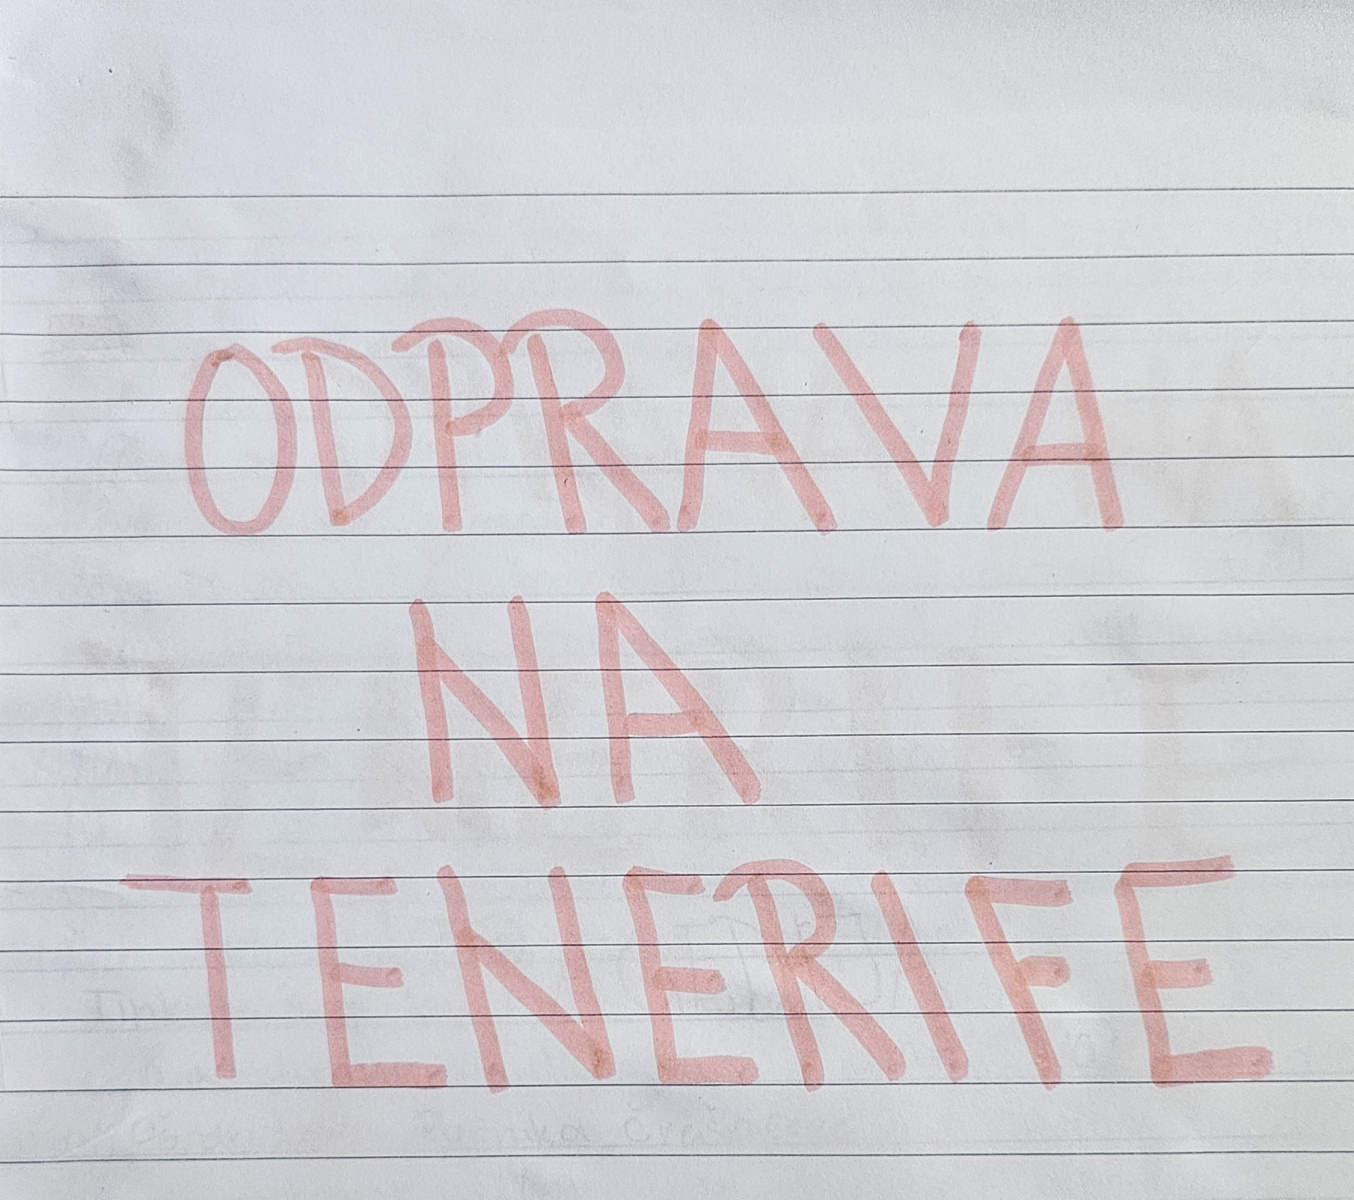 ODPRAVA
NA
TENERIFE